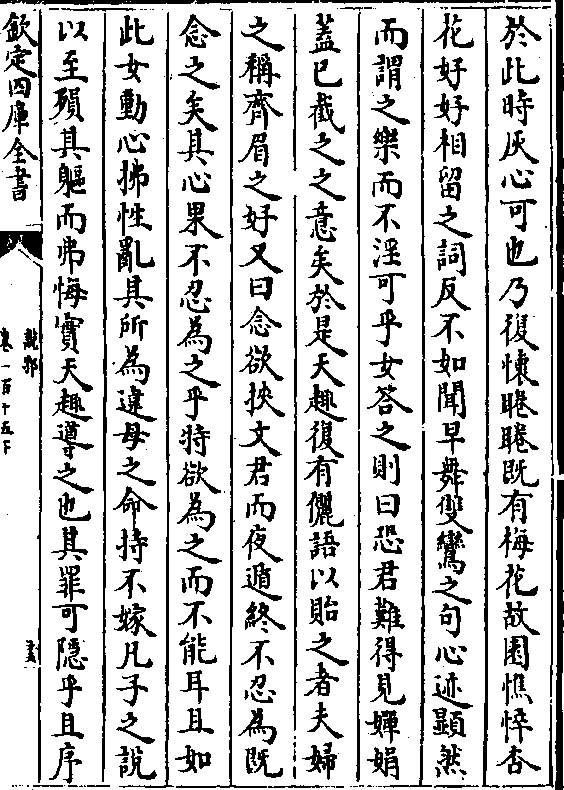 於此時灰心可也乃復懐睠睠既有梅花故園憔悴杏
花好好相留之詞反不如聞早舞雙鸞之句心迹顯然
而謂之樂而不淫可乎女答之則曰恐君難得見嬋娟
葢已截之之意矣於是天趣復有儷語以貽之者夫婦
之稱齊眉之好又曰念欲挾文君而夜遁終不忍為既
念之矣其心果不忍為之乎特欲為之而不能耳且如
此女動心拂性亂其所為違母之命持不嫁凡子之說
以至殞其軀而弗悔實天趣導之也其罪可隱乎且序
欽定四庫全書
說郛
卷一百十五下